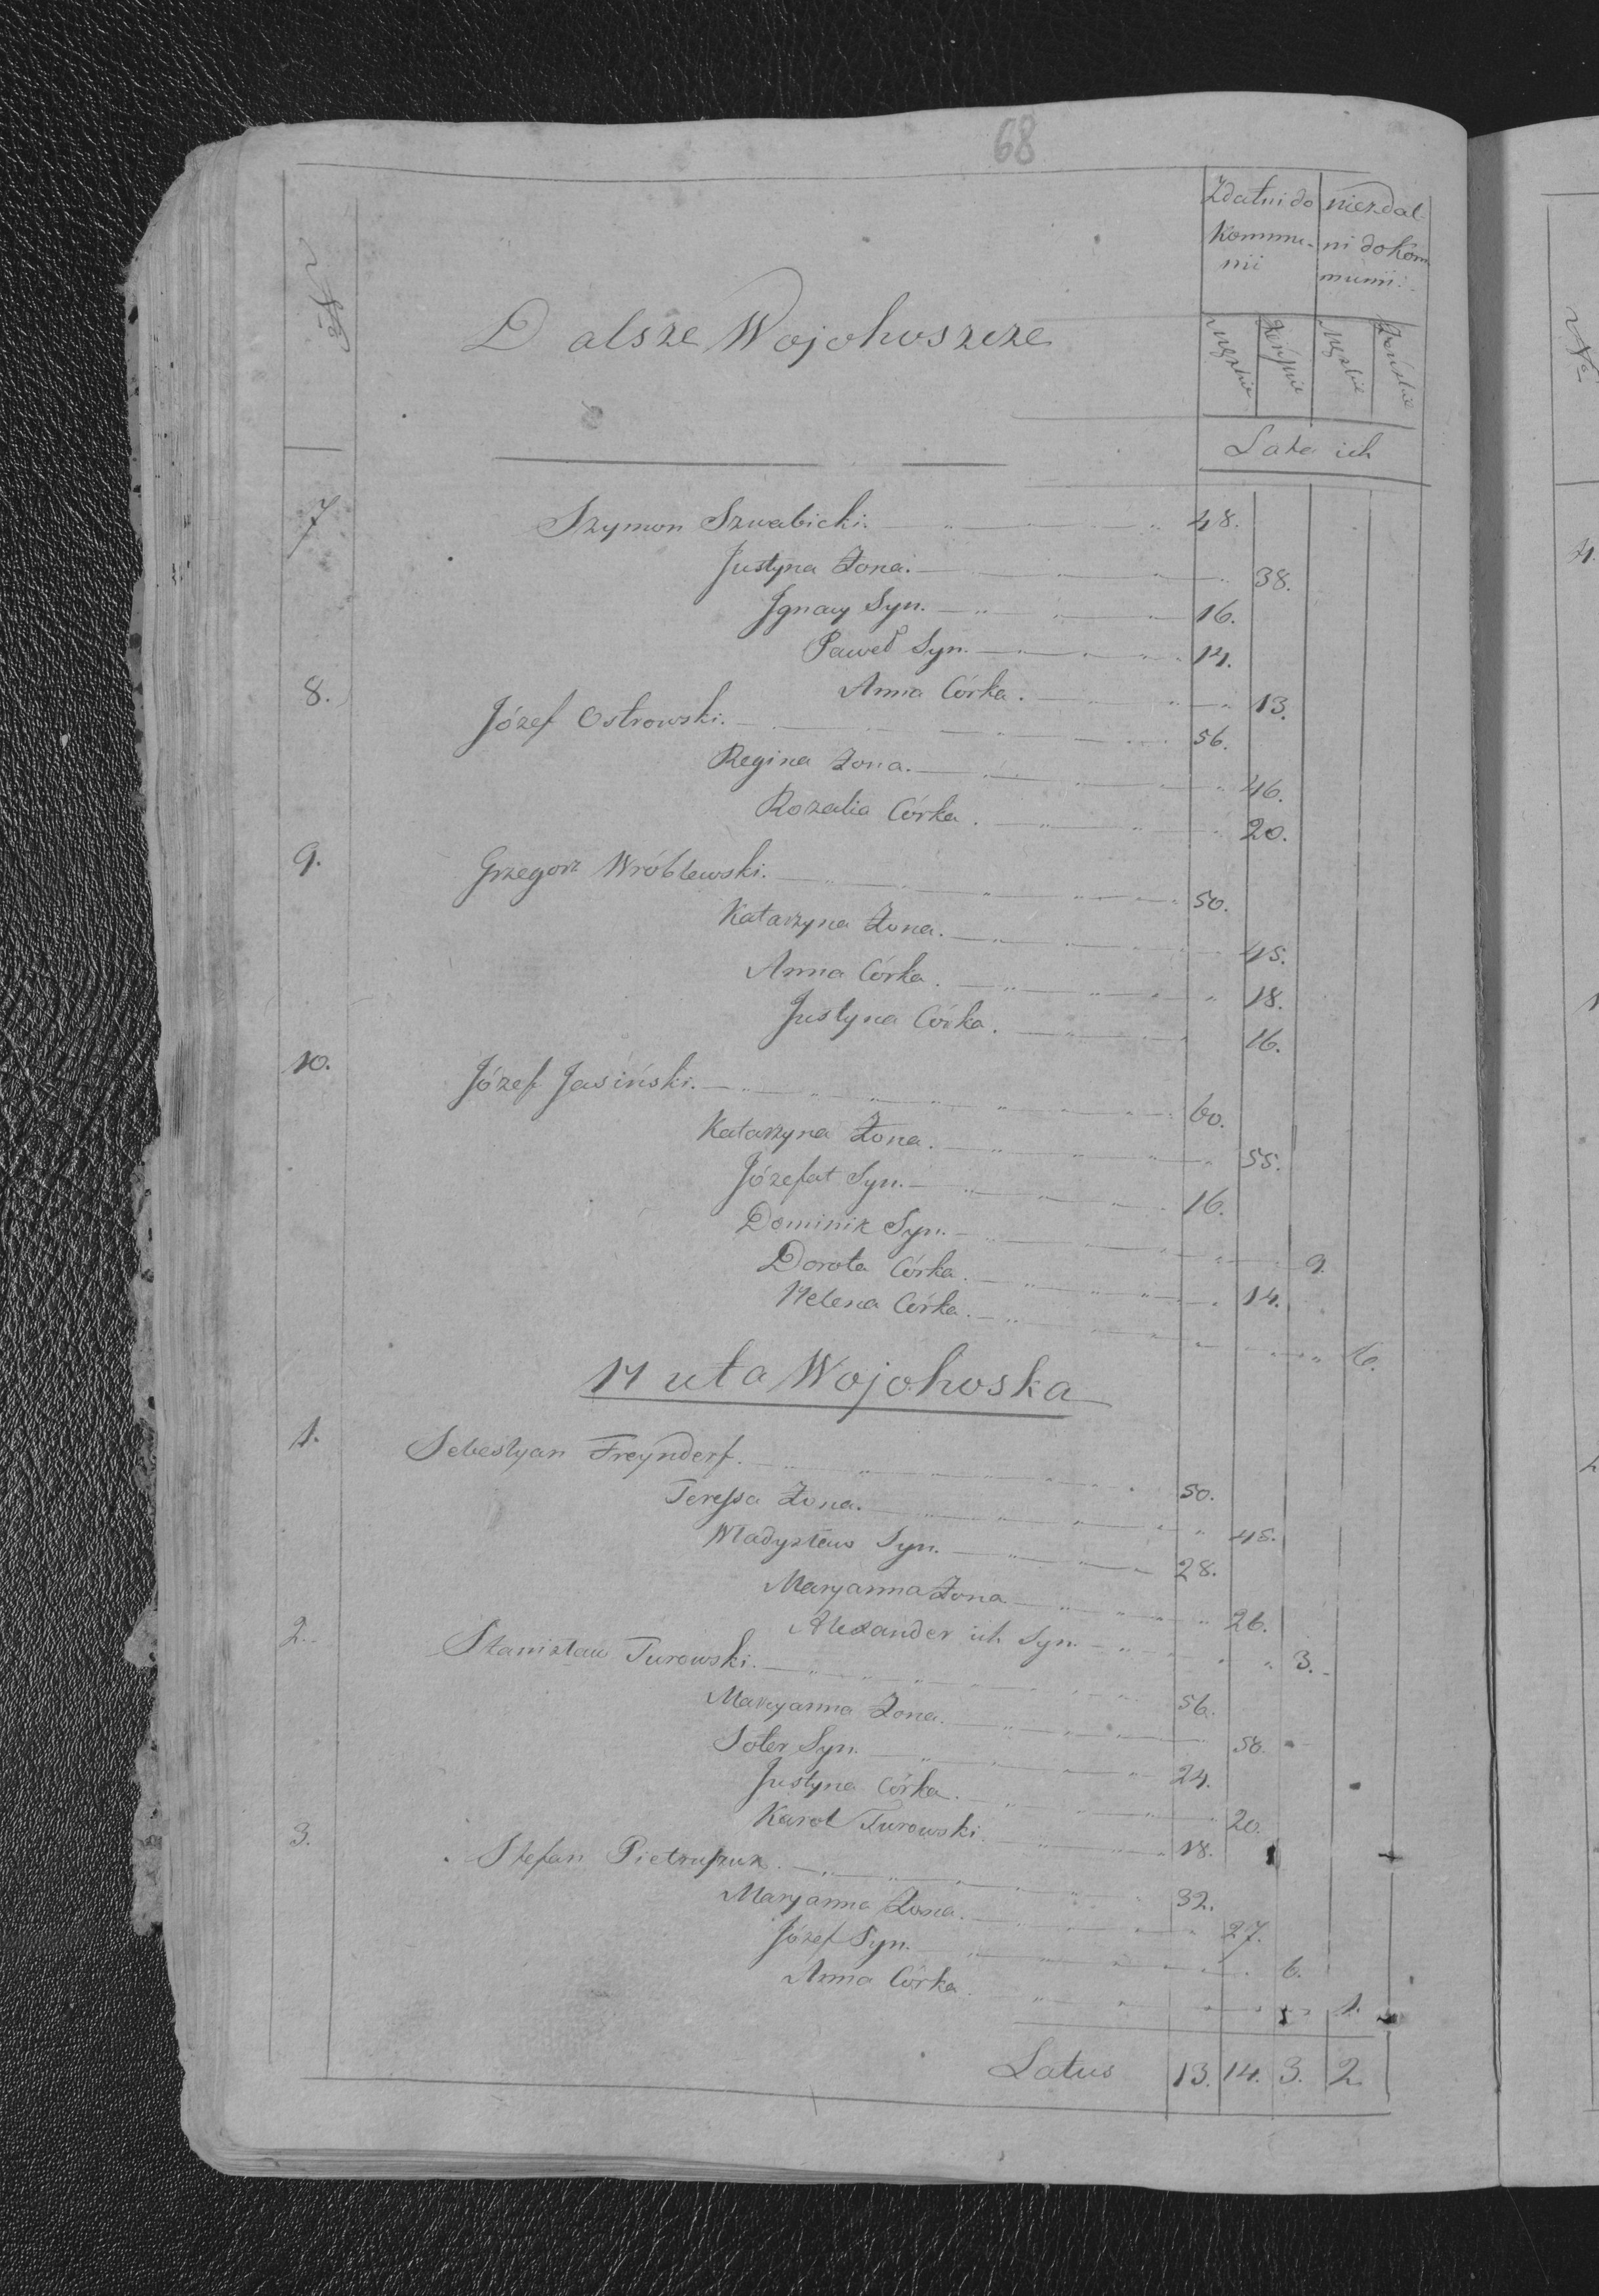 68
Zdatni do niezdat-
Kommu- ni do Kom-
nii munii.
Nro
Dalsze Wojohoszcze
Męzkie Żeńskie Męzkie Żeńskie
Lata ich
7 Szymon Szwabicki. 48.
Justyna Żona. 38.
Ignacy Syn. 16.
Paweł Syn. 14.
Anna Córka. 13.
8. Józef Ostrowski. 56.
Regina Żona. 46.
Rozalia Córka. 20.
9. Grzegorz Wróblewski. 50.
Katarzyna Żona. 45.
Anna Córka. 18.
Justyna Córka. 16.
10. Józef Jasiński. 60.
Katarzyna Żona. 55.
Józefat Syn. 16.
Dominik Syn. 9.
Dorota Córka. 14.
Helena Córka. 6.
Huta Wojohoska
1. Sebestyan Freynderf. 50.
Teressa Żona. 45.
Władysław Syn. 28.
Maryanna Żona 26.
Alexander ich Syn. 3.
2. Stanisław Turowski. 56.
Maryanna Żona. 50.
Soter Syn. 24.
Justyna Córka. 20.
Karol Turowski. 18.
3. Stefan Pietruszuk. 32.
Maryanna Żona. 27.
Józef Syn. 6.
Anna Córka. 1.
Latus 13. 14. 3. 2